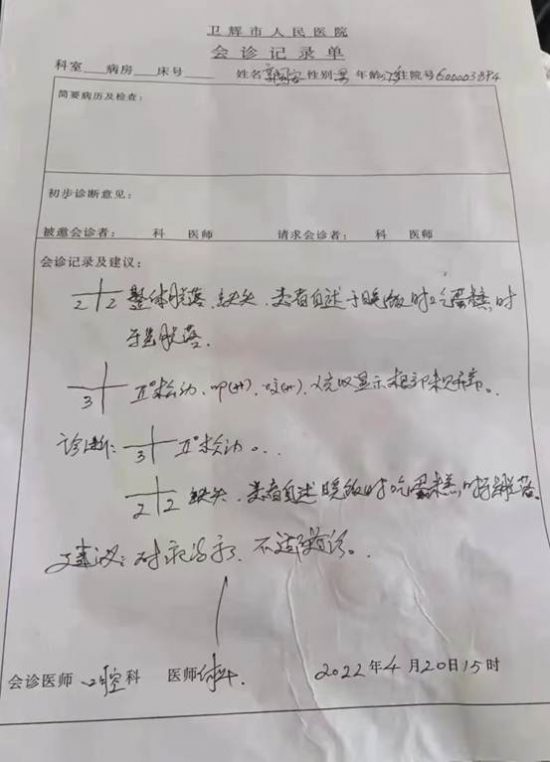 卫辉市人民医院
会诊记录单
科室 病房 床号 姓名 性别 男 年龄 住院号 600003894
简要病历及检查：
初步诊断意见：
被邀会诊者： 科 医师 请求会诊者： 科 医师
会诊记录及建议：
2 2 整体脱落、缺失、患者自述于晚饭时吃蛋糕时
脱落.
3 Ⅱ°松动、显示根部未见异常。
诊断: 3 Ⅱ°松动。
2 2 缺失、患者自述晚饭时吃蛋糕时脱落.
建议: 对症治疗, 不适随诊。
会诊医师 口腔科 医师 2022年4月20日15时